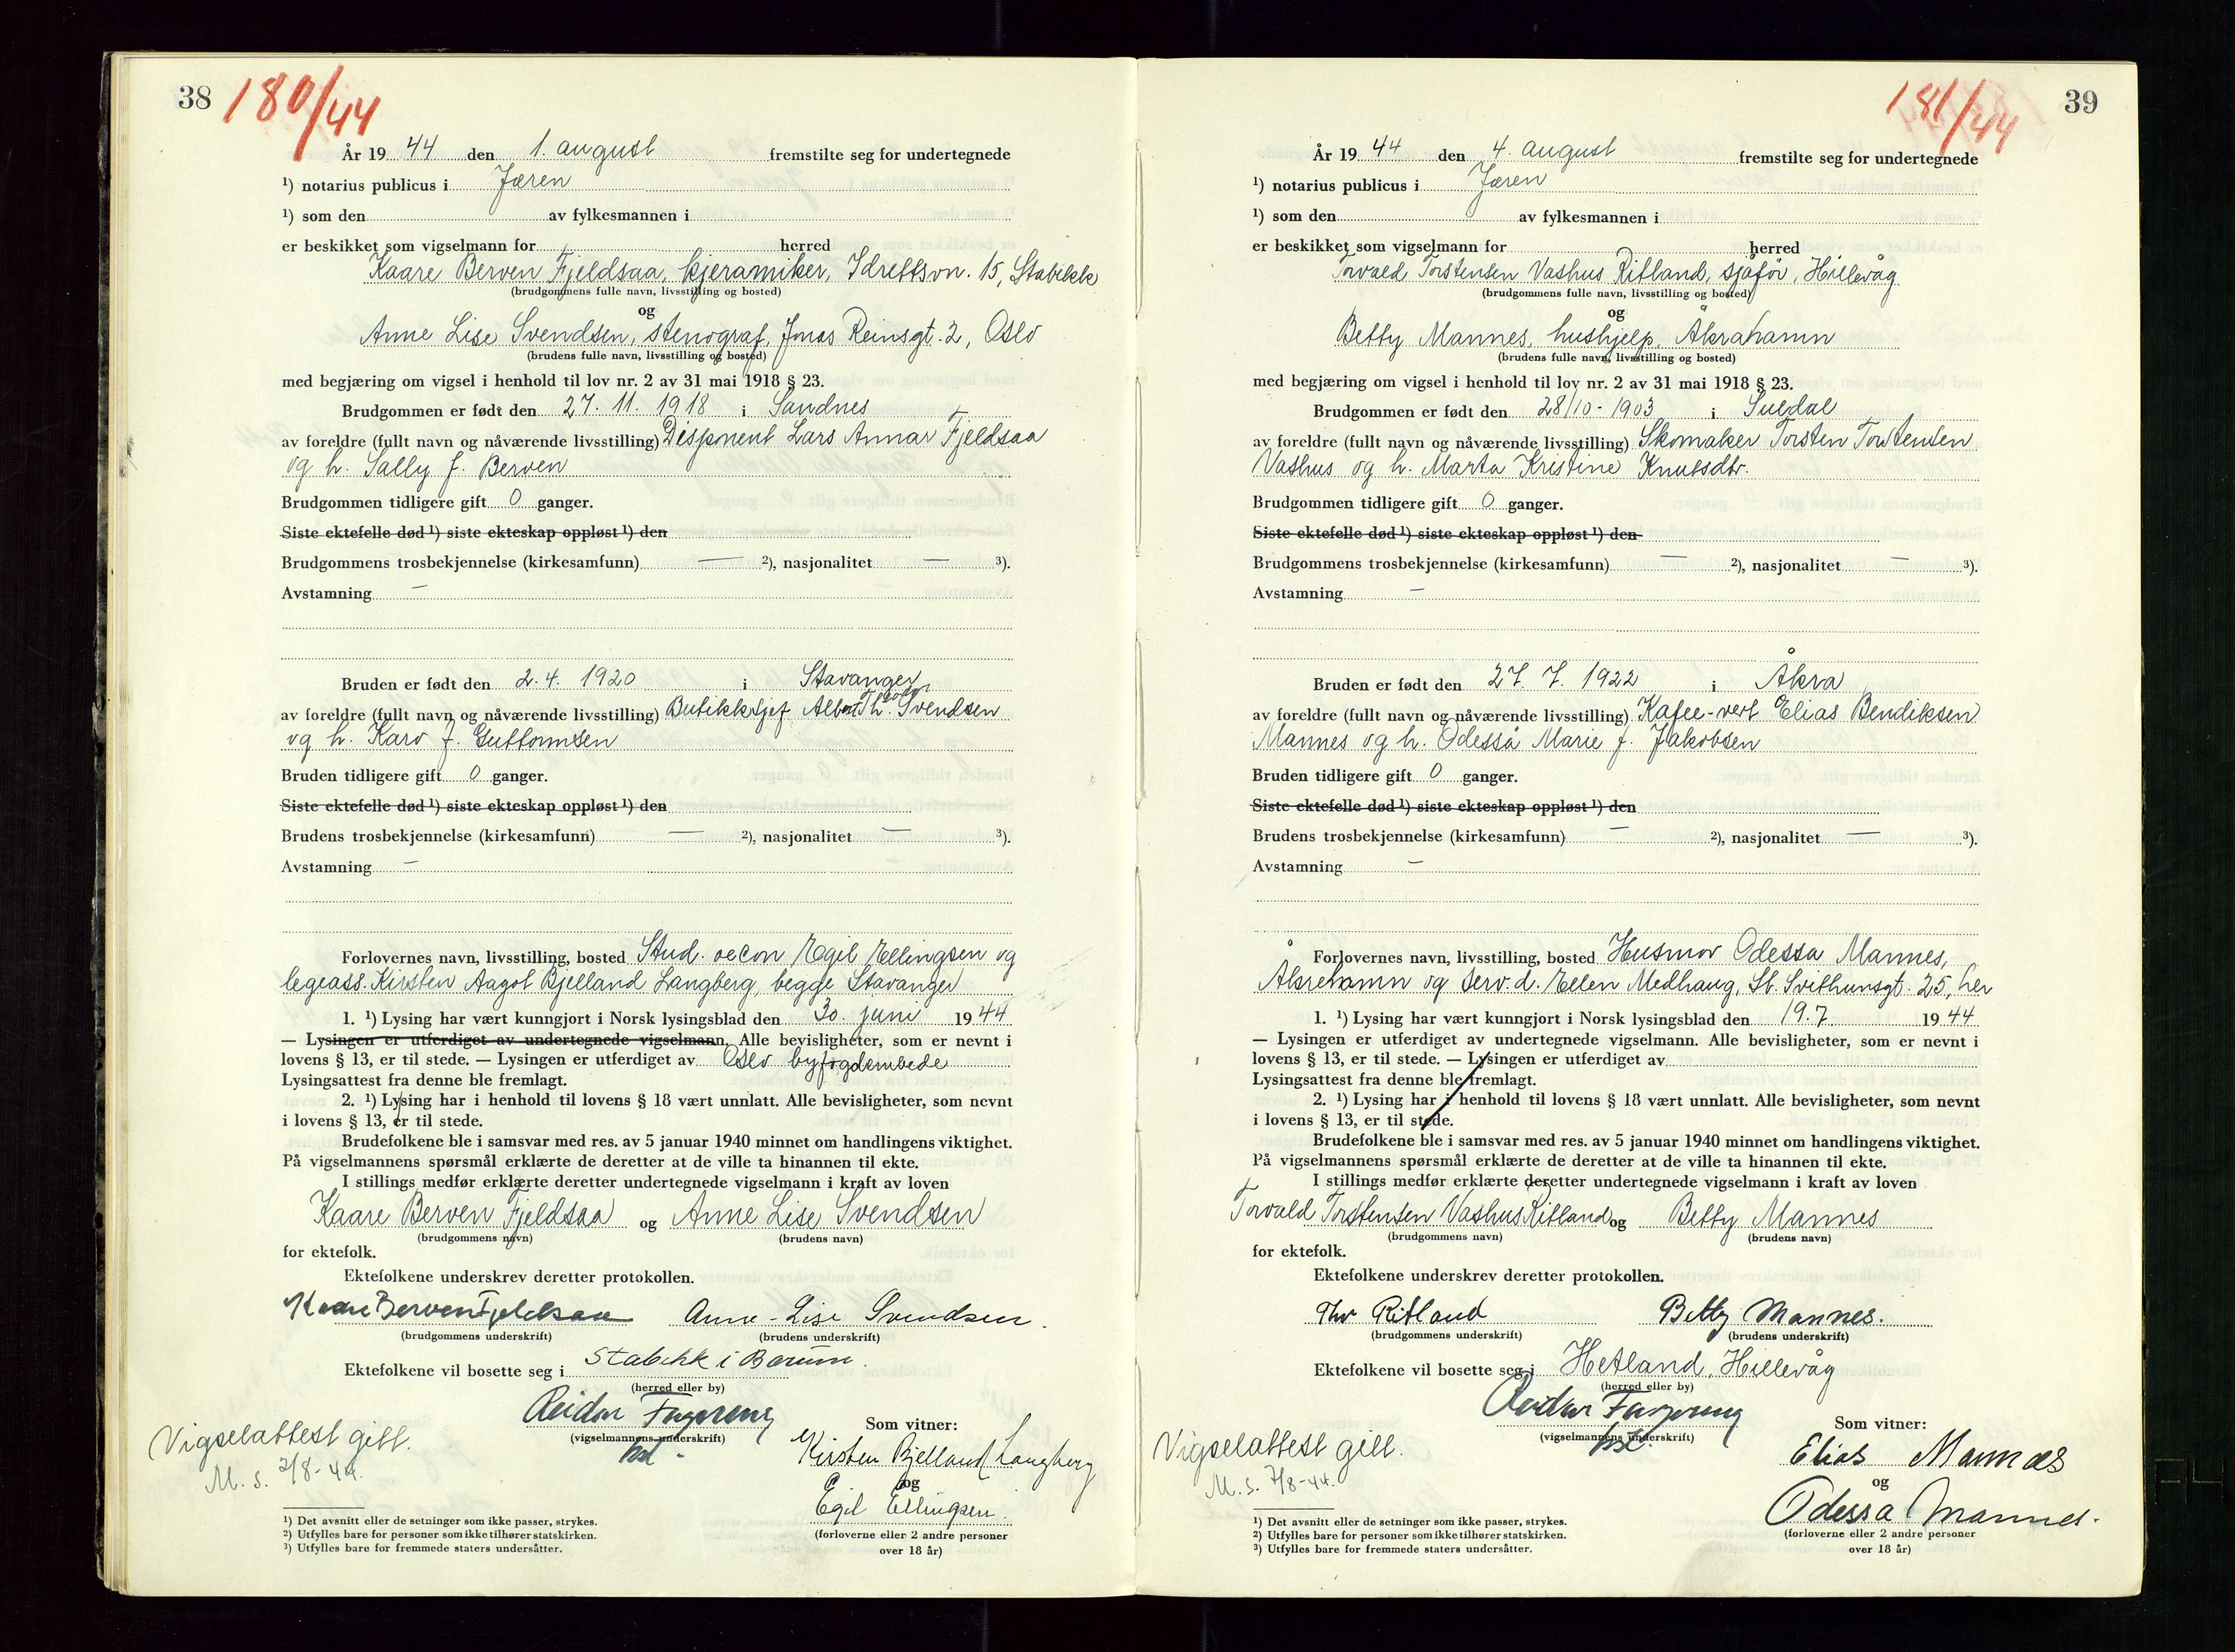 38 180/44
År 19 44 den 1. august fremstilte seg for undertegnede
¹) notarius publicus i Jæren
¹) som den av fylkesmannen i
er beskikket som vigselmann for herred
Kaare Berven Fjeldsaa, kjeramiker, Idrettsvn. 15, Stabekk
(brudgommens fulle navn, livsstilling og bosted)
og
Anne Lise Svendsen, stenograf, Jonas Reinsgt. 2, Oslo
(brudens fulle navn, livsstilling og bosted)
med begjæring om vigsel i henhold til lov nr. 2 av 31 mai 1918 § 23.
Brudgommen er født den 27. 11. 1918 i Sandnes
av foreldre (fullt navn og nåværende livsstilling) Disponent Lars Annar Fjeldsaa
og h. Sally f. Berven
Brudgommen tidligere gift 0 ganger.
Siste ektefelle død ¹) siste ekteskap oppløst ¹) den
Brudgommens trosbekjennelse (kirkesamfunn) — ²), nasjonalitet — ³).
Avstamning —
Bruden er født den 2. 4. 1920 i Stavanger
av foreldre (fullt navn og nåværende livsstilling) Butikksjef Albert Theodor Svendsen
og h. Karo f. Guttormsen
Bruden tidligere gift 0 ganger.
Siste ektefelle død ¹) siste ekteskap oppløst ¹) den
Brudens trosbekjennelse (kirkesamfunn) — ²), nasjonalitet — ³).
Avstamning —
Forlovernes navn, livsstilling, bosted Stud. oecon Egil Ellingsen og
legeass. Kirsten Aagot Bjelland Langberg, begge Stavanger
1. ¹) Lysing har vært kunngjort i Norsk lysingsblad den 30. juni 19 44
— Lysingen er utferdiget av undertegnede vigselmann. Alle bevisligheter, som er nevnt i
lovens § 13, er til stede. — Lysingen er utferdiget av Oslo byfogdembede
Lysingsattest fra denne ble fremlagt.
2. ¹) Lysing har i henhold til lovens § 18 vært unnlatt. Alle bevisligheter, som nevnt
i lovens § 13, er til stede.
Brudefolkene ble i samsvar med res. av 5 januar 1940 minnet om handlingens viktighet.
På vigselmannens spørsmål erklærte de deretter at de ville ta hinannen til ekte.
I stillings medfør erklærte deretter undertegnede vigselmann i kraft av loven
Kaare Berven Fjeldsaa og Anne Lise Svendsen
(brudgommens navn) (brudens navn)
for ektefolk.
Ektefolkene underskrev deretter protokollen.
Kaare Berven Fjeldsaa Anne-Lise Svendsen.
(brudgommens underskrift) (brudens underskrift)
Ektefolkene vil bosette seg i Stabekk i Bærum.
(herred eller by)
Reidar Fagereng
(vigselmannens underskrift)
Som vitner:
Kirsten Bjelland Langberg
og
Egil Ellingsen.
(forloverne eller 2 andre personer
over 18 år)
Vigselattest gitt.
M. S. 2/8-44.
¹) Det avsnitt eller de setninger som ikke passer, strykes.
²) Utfylles bare for personer som ikke tilhører statskirken.
³) Utfylles bare for fremmede staters undersåtter.
181/44 39
År 19 44 den 4. august fremstilte seg for undertegnede
¹) notarius publicus i Jæren
¹) som den av fylkesmannen i
er beskikket som vigselmann for herred
Torvald Torstensen Vashus Ritland, sjåfør, Hillevåg
(brudgommens fulle navn, livsstilling og bosted)
og
Betty Mannes, hushjelp, Åkrahamn
(brudens fulle navn, livsstilling og bosted)
med begjæring om vigsel i henhold til lov nr. 2 av 31 mai 1918 § 23.
Brudgommen er født den 28/10-1903 i Suldal
av foreldre (fullt navn og nåværende livsstilling) Skomaker Torsten Torstensen
Vashus og h. Marta Kristine Knutsdtr.
Brudgommen tidligere gift 0 ganger.
Siste ektefelle død ¹) siste ekteskap oppløst ¹) den
Brudgommens trosbekjennelse (kirkesamfunn) — ²), nasjonalitet — ³).
Avstamning —
Bruden er født den 27. 7. 1922 i Åkra
av foreldre (fullt navn og nåværende livsstilling) Kafee-vert Elias Bendiksen
Mannes og h. Odessa Marie f. Jakobsen
Bruden tidligere gift 0 ganger.
Siste ektefelle død ¹) siste ekteskap oppløst ¹) den
Brudens trosbekjennelse (kirkesamfunn) — ²), nasjonalitet — ³).
Avstamning —
Forlovernes navn, livsstilling, bosted Husmor Odessa Mannes,
Åkrehamn og serv.d. Ellen Medhaug, St. Svithunsgt. 25, her
1. ¹) Lysing har vært kunngjort i Norsk lysingsblad den 19.7. 19 44
— Lysingen er utferdiget av undertegnede vigselmann. Alle bevisligheter, som er nevnt i
lovens § 13, er til stede. — Lysingen er utferdiget av
Lysingsattest fra denne ble fremlagt.
2. ¹) Lysing har i henhold til lovens § 18 vært unnlatt. Alle bevisligheter, som nevnt
i lovens § 13, er til stede.
Brudefolkene ble i samsvar med res. av 5 januar 1940 minnet om handlingens viktighet.
På vigselmannens spørsmål erklærte de deretter at de ville ta hinannen til ekte.
I stillings medfør erklærte deretter undertegnede vigselmann i kraft av loven
Torvald Torstensen Vashus Ritland og Betty Mannes
(brudgommens navn) (brudens navn)
for ektefolk.
Ektefolkene underskrev deretter protokollen.
Thv Ritland Betty Mannes.
(brudgommens underskrift) (brudens underskrift)
Ektefolkene vil bosette seg i Hetland, Hillevåg
(herred eller by)
Reidar Fagereng
(vigselmannens underskrift)
Som vitner:
Elias Mannes
og
Odessa Mannes.
(forloverne eller 2 andre personer
over 18 år)
Vigselattest gitt.
M. S. 7/8-44.
¹) Det avsnitt eller de setninger som ikke passer, strykes.
²) Utfylles bare for personer som ikke tilhører statskirken.
³) Utfylles bare for fremmede staters undersåtter.